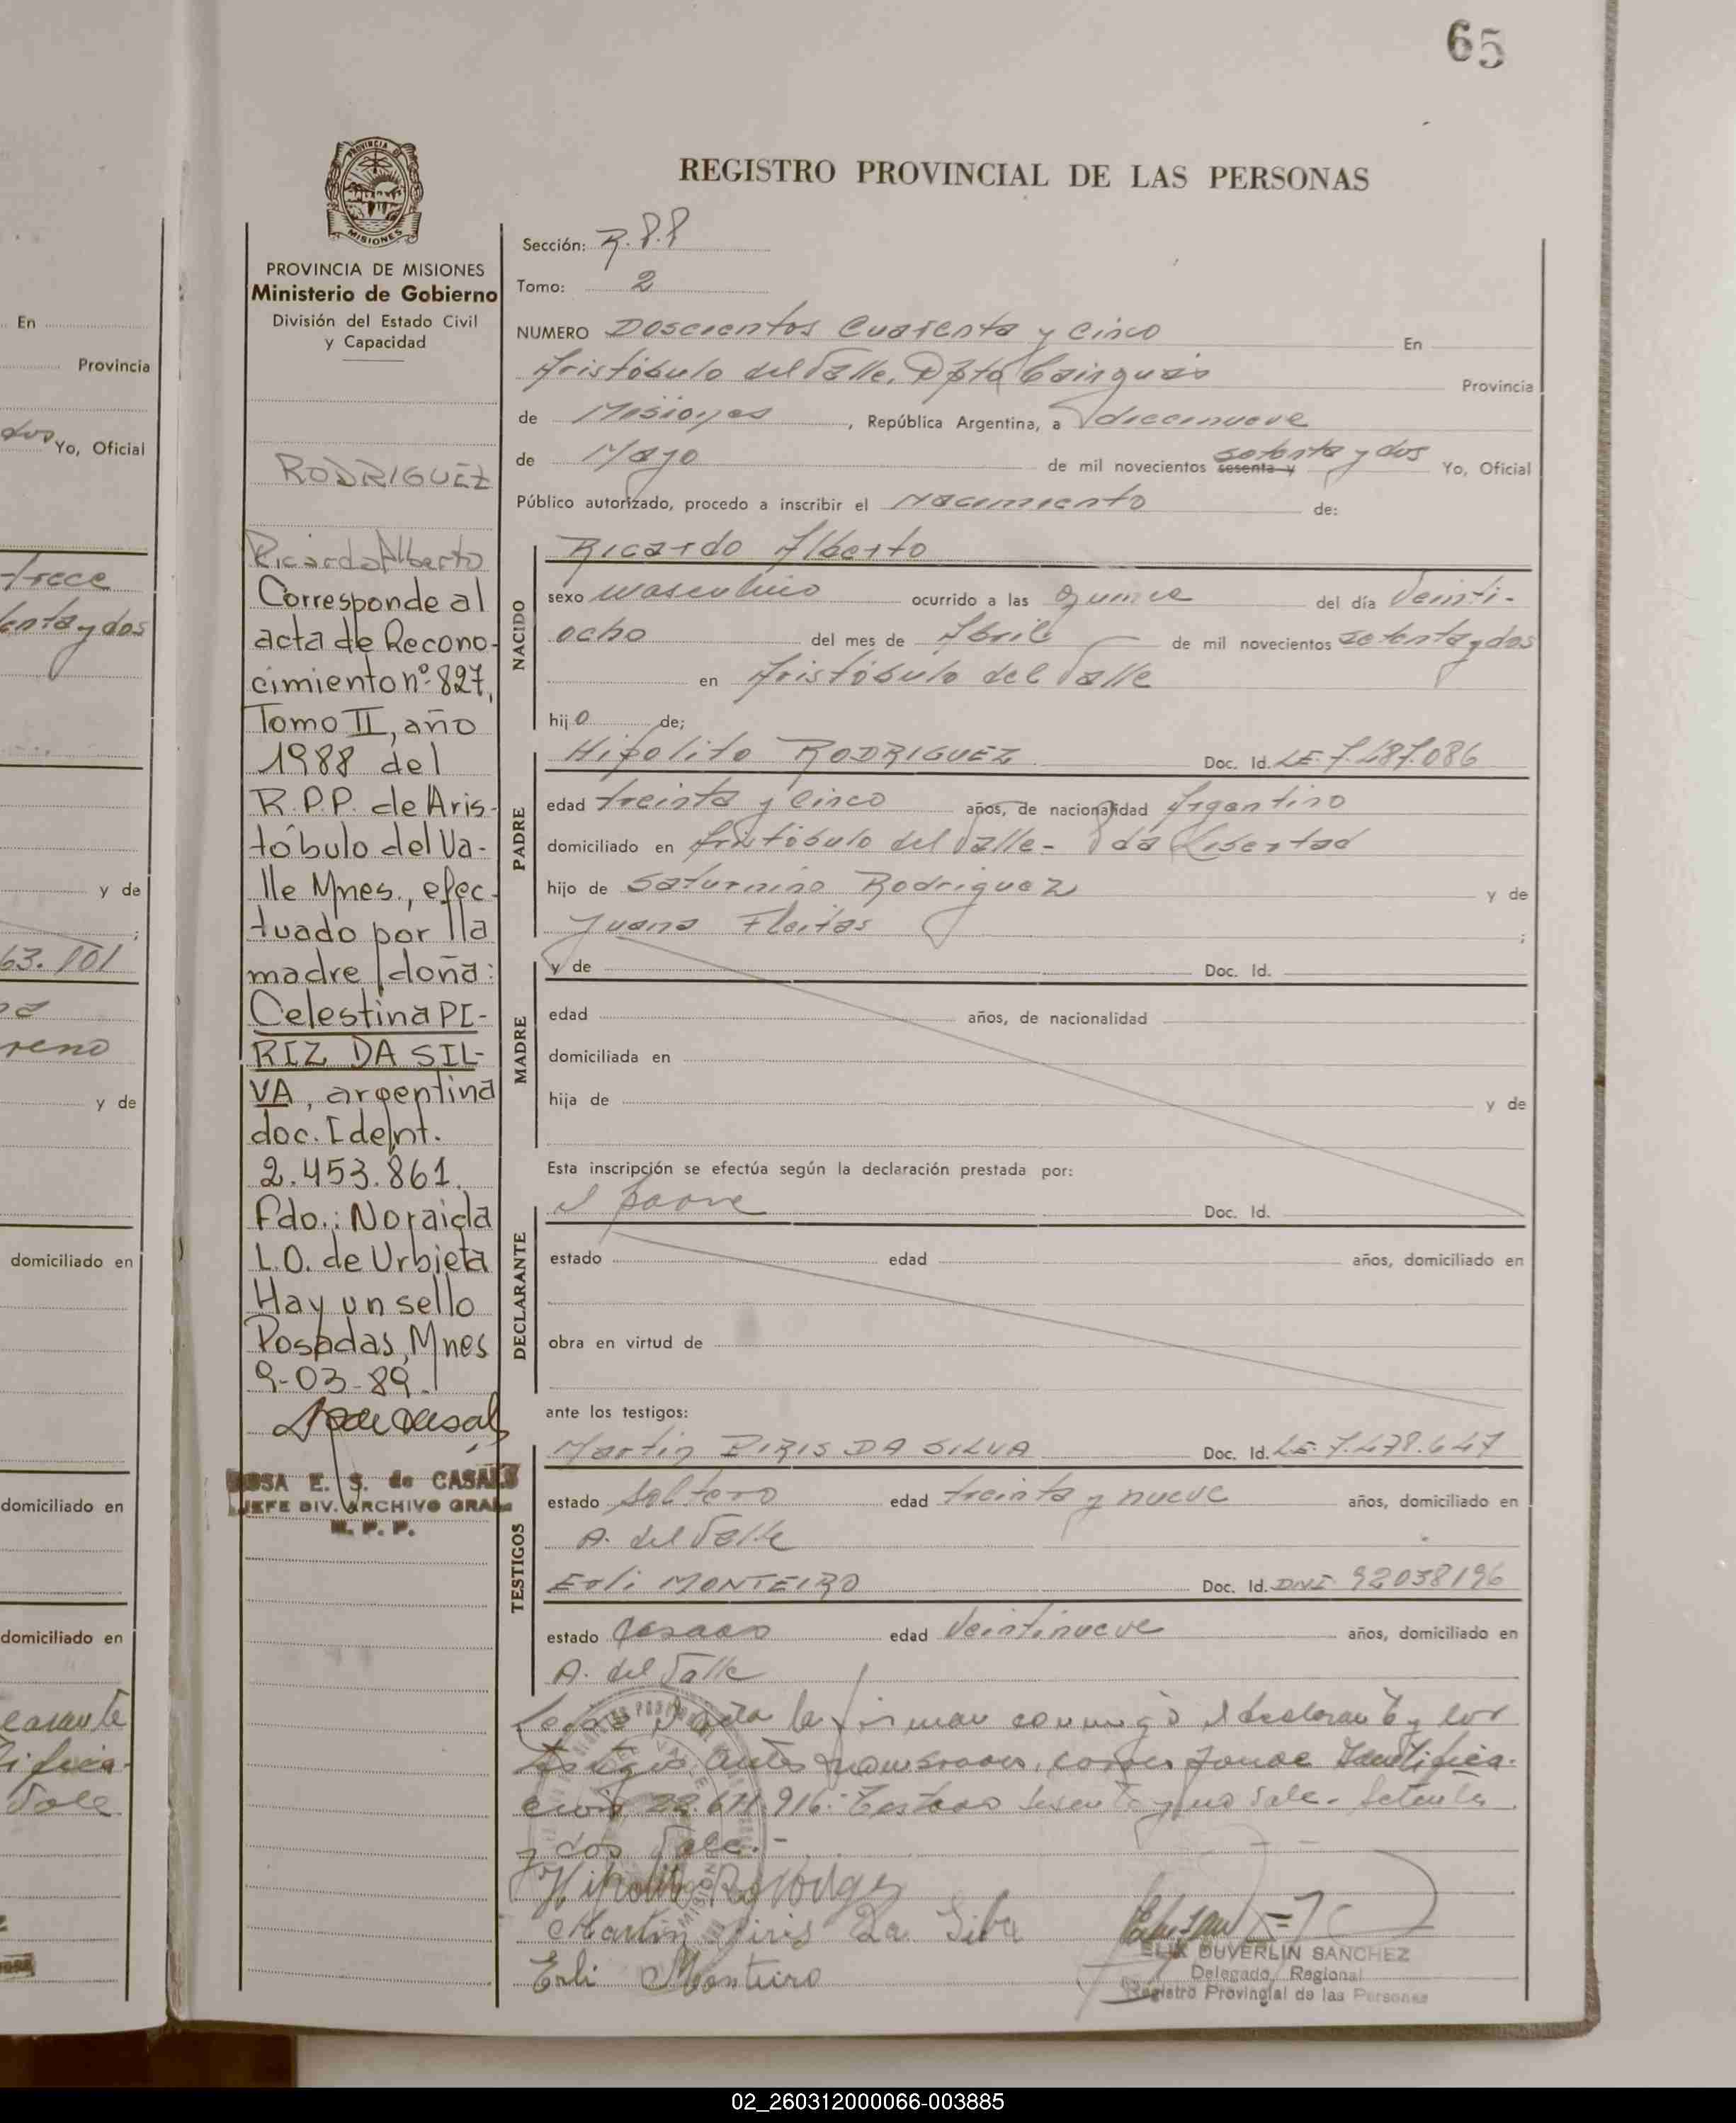 65
REGISTRO PROVINCIAL DE LAS PERSONAS
PROVINCIA DE MISIONES
PROVINCIA DE MISIONES
Ministerio de Gobierno
División del Estado Civil
y Capacidad
RODRIGUEZ
Ricardo Alberto
Corresponde al
acta de Recono-
cimiento nº 827,
Tomo II, año
1988 del
R.P.P. de Aris-
tóbulo del Va-
lle Mnes., efec-
tuado por la
madre doña:
Celestina PI-
RIZ DA SIL-
VA, argentina
doc. Ident.
2.453.861.
Fdo.: Noraida
L.O. de Urbieta
Hay un sello
Posadas, Mnes
9-03-89.
ROSA E. S. de CASALS
JEFE DIV. ARCHIVO GRAL
R. P. P.
Sección: R.P.P
Tomo: 2
NUMERO Doscientos Cuarenta y Cinco En
Aristóbulo del Valle, Dpto Cainguás Provincia
de Misiones, República Argentina, a diecinueve
de Mayo de mil novecientos sesenta y setenta y dos Yo, Oficial
Público autorizado, procedo a inscribir el Nacimiento de:
NACIDO
Ricardo Alberto
sexo masculino ocurrido a las quince del día Veinti-
ocho del mes de Abril de mil novecientos setenta y dos
en Aristóbulo del Valle
hijo de;
PADRE
Hipolito RODRIGUEZ Doc. Id. LE. 7.487.086
edad treinta y cinco años, de nacionalidad Argentino
domiciliado en Aristóbulo del Valle - da Libertad
hijo de Saturnino Rodriguez y de
Juana Fleitas ;
MADRE
y de Doc. Id.
edad años, de nacionalidad
domiciliada en
hija de y de
Esta inscripción se efectúa según la declaración prestada por:
DECLARANTE
el padre Doc. Id.
estado edad años, domiciliado en
obra en virtud de
ante los testigos:
TESTIGOS
Martin PIRIS DA SILVA Doc. Id. LE. 7.478.647
estado Soltero edad treinta y nueve años, domiciliado en
A. del Valle
Erli MONTEIRO Doc. Id. DNI 92038196
estado casado edad Veintinueve años, domiciliado en
A. del Valle
Leida el Acta la firman conmigo el declarante y los
testigos antes nombrados, corresponde Identifica-
ción 22.611.916.- Testado sesenta y no vale. Setenta
y dos Vale.-
Hipolito Rodrigez
Martin Piris Da Silva
Erli Monteiro
ELIX DUVERLIN SANCHEZ
Delegado Regional
Registro Provincial de las Personas
En
Provincia
dos Yo, Oficial
trece
enta y dos
y de
;
63.101
reno
y de
domiciliado en
domiciliado en
domiciliado en
ifica-
Vale
02_260312000066-003885